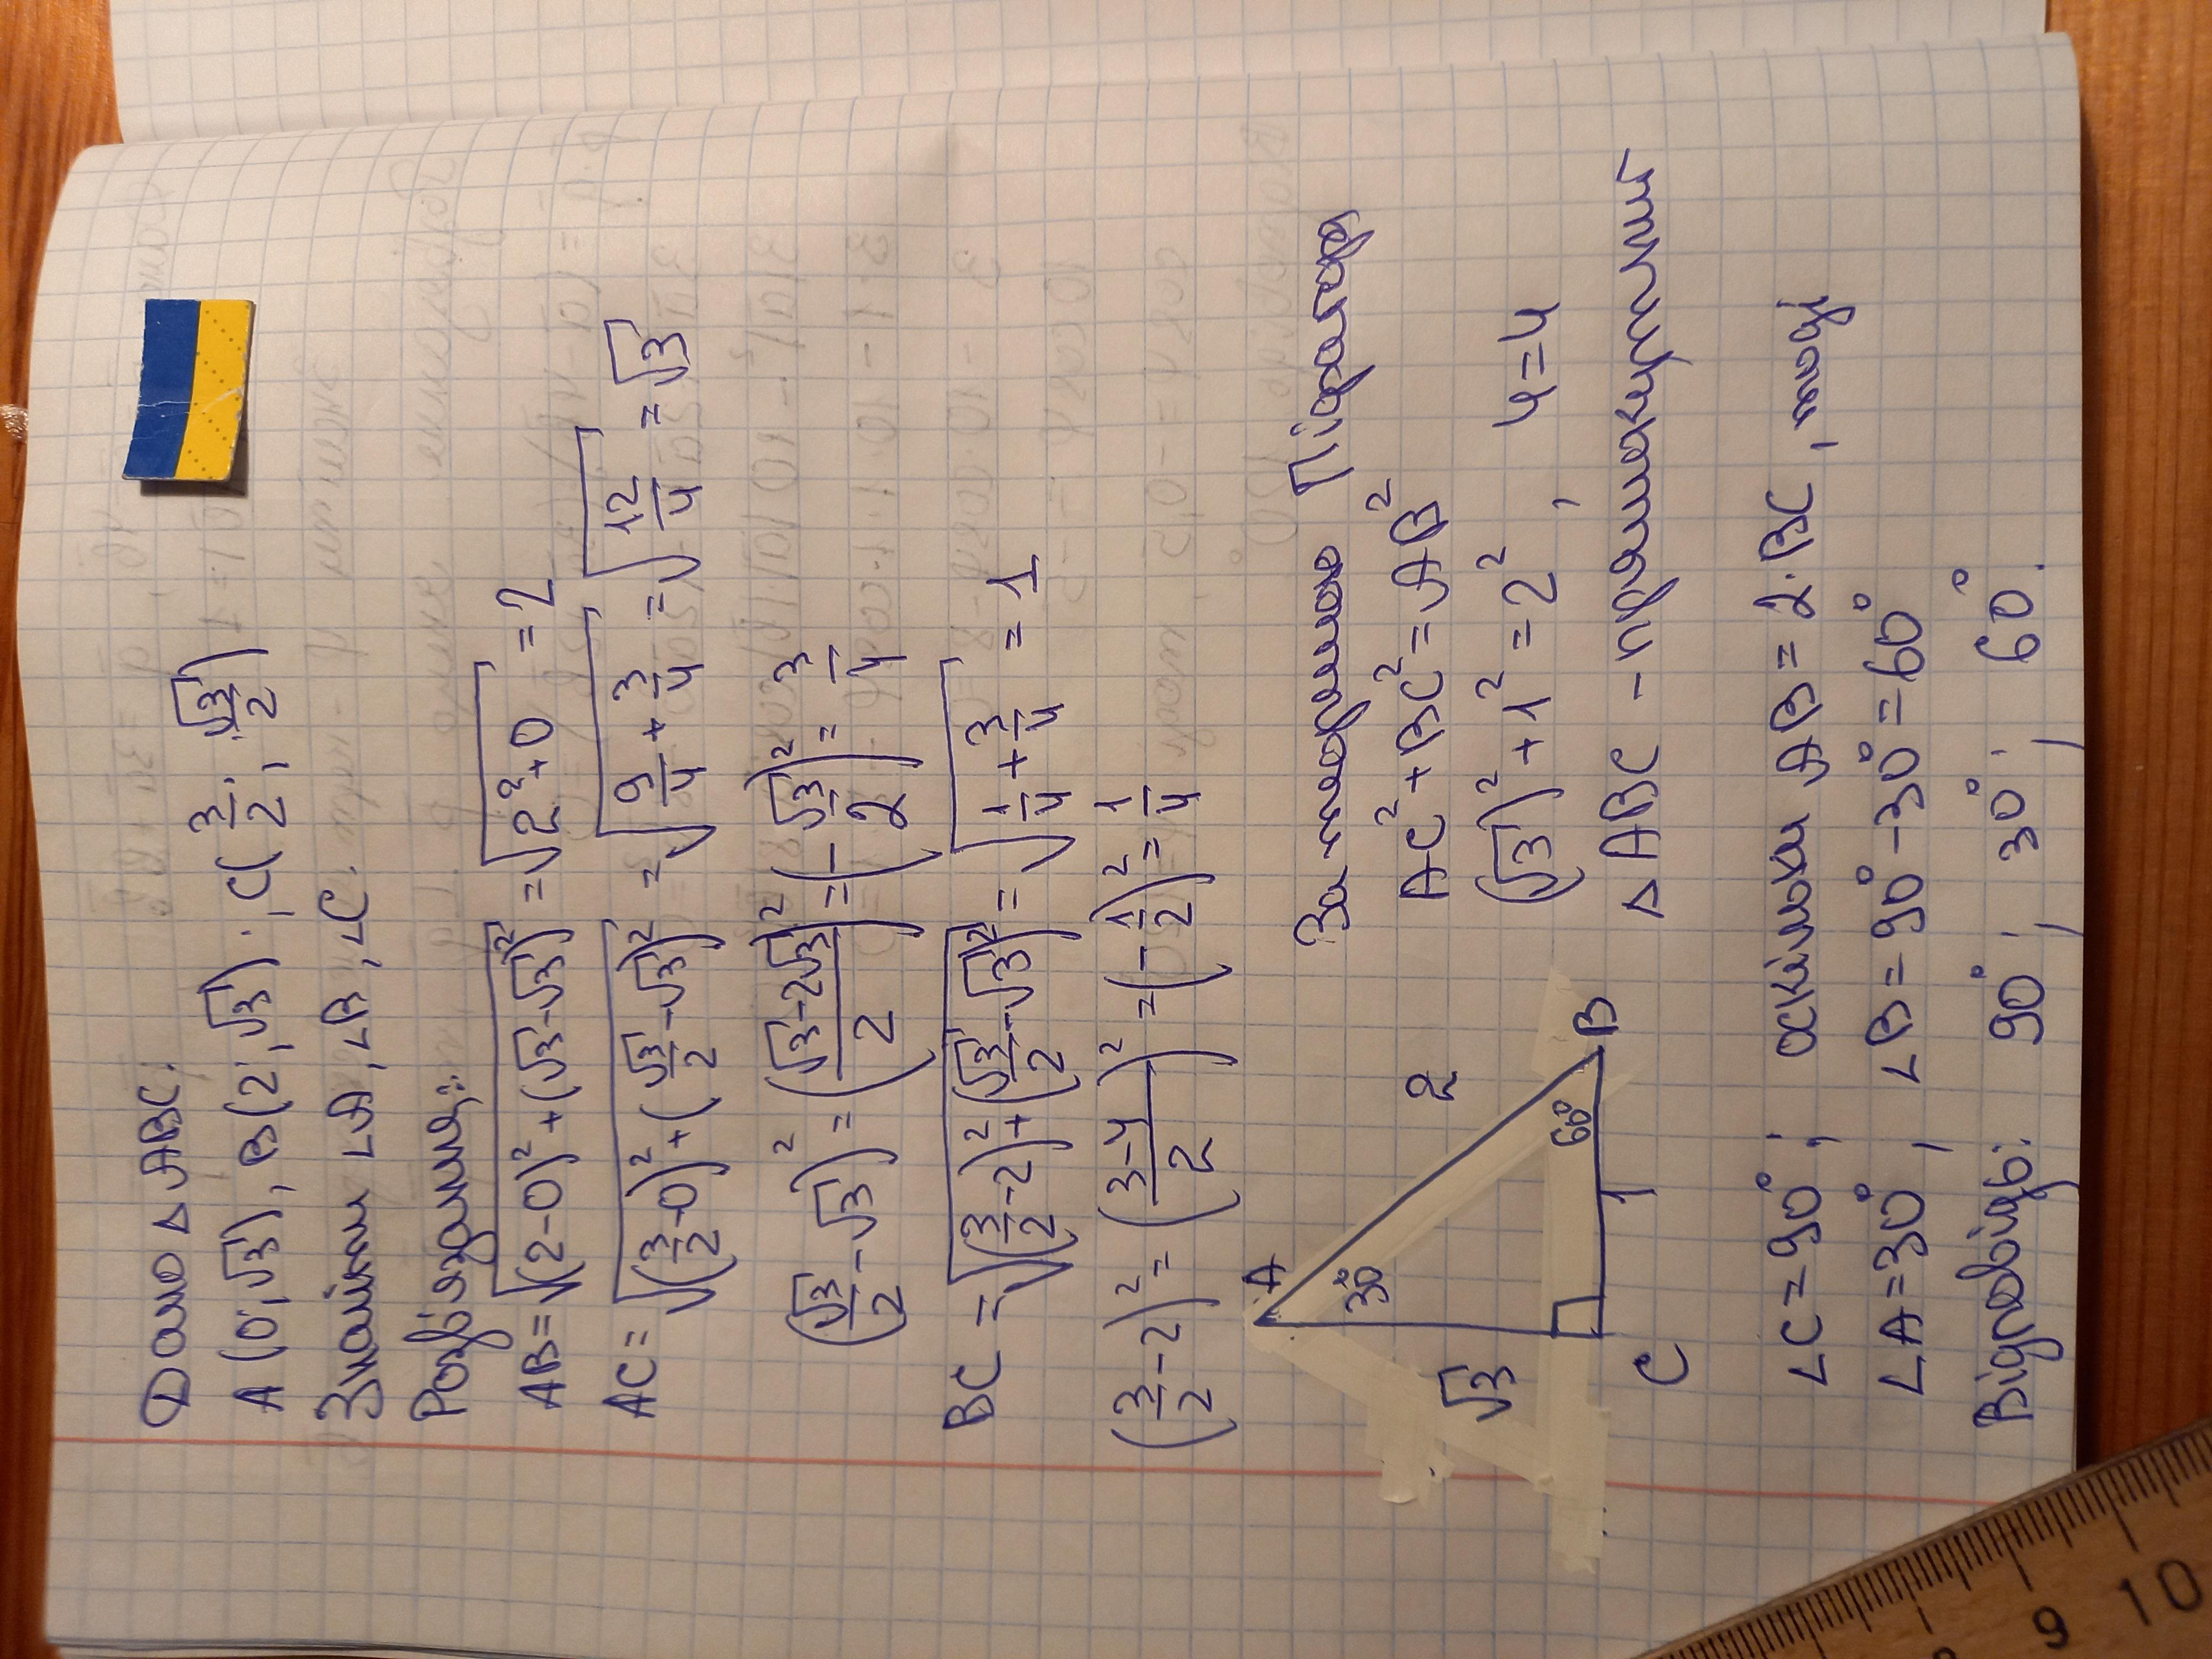 Дано △ABC:
A(0;√3), B(2;√3), C(3/2; √3/2)
Знайти ∠A, ∠B, ∠C.
Розв'язання:
AB=√((2-0)²+(√3-√3)²) =√(2²+0) =2
AC= √((3/2-0)²+(√3/2-√3)²) =√(9/4+3/4) =√(12/4) =√3
(√3/2-√3)²=((√3-2√3)/2)²=(-√3/2)²=3/4
BC =√((3/2-2)²+(√3/2-√3)²)=√(1/4+3/4) =1
(3/2-2)²=((3-4)/2)²=(-1/2)²=1/4
За теоремою Піфагора
AC²+BC²=AB²
(√3)²+1²=2², 4=4
△ABC - прямокутний
A
30°
√3
2
60°
B
C
1
∠C=90°; оскільки AB=2·BC, тоді
∠A=30°, ∠B=90°-30°=60°
Відповідь: 90°; 30°; 60°.
8 9 10